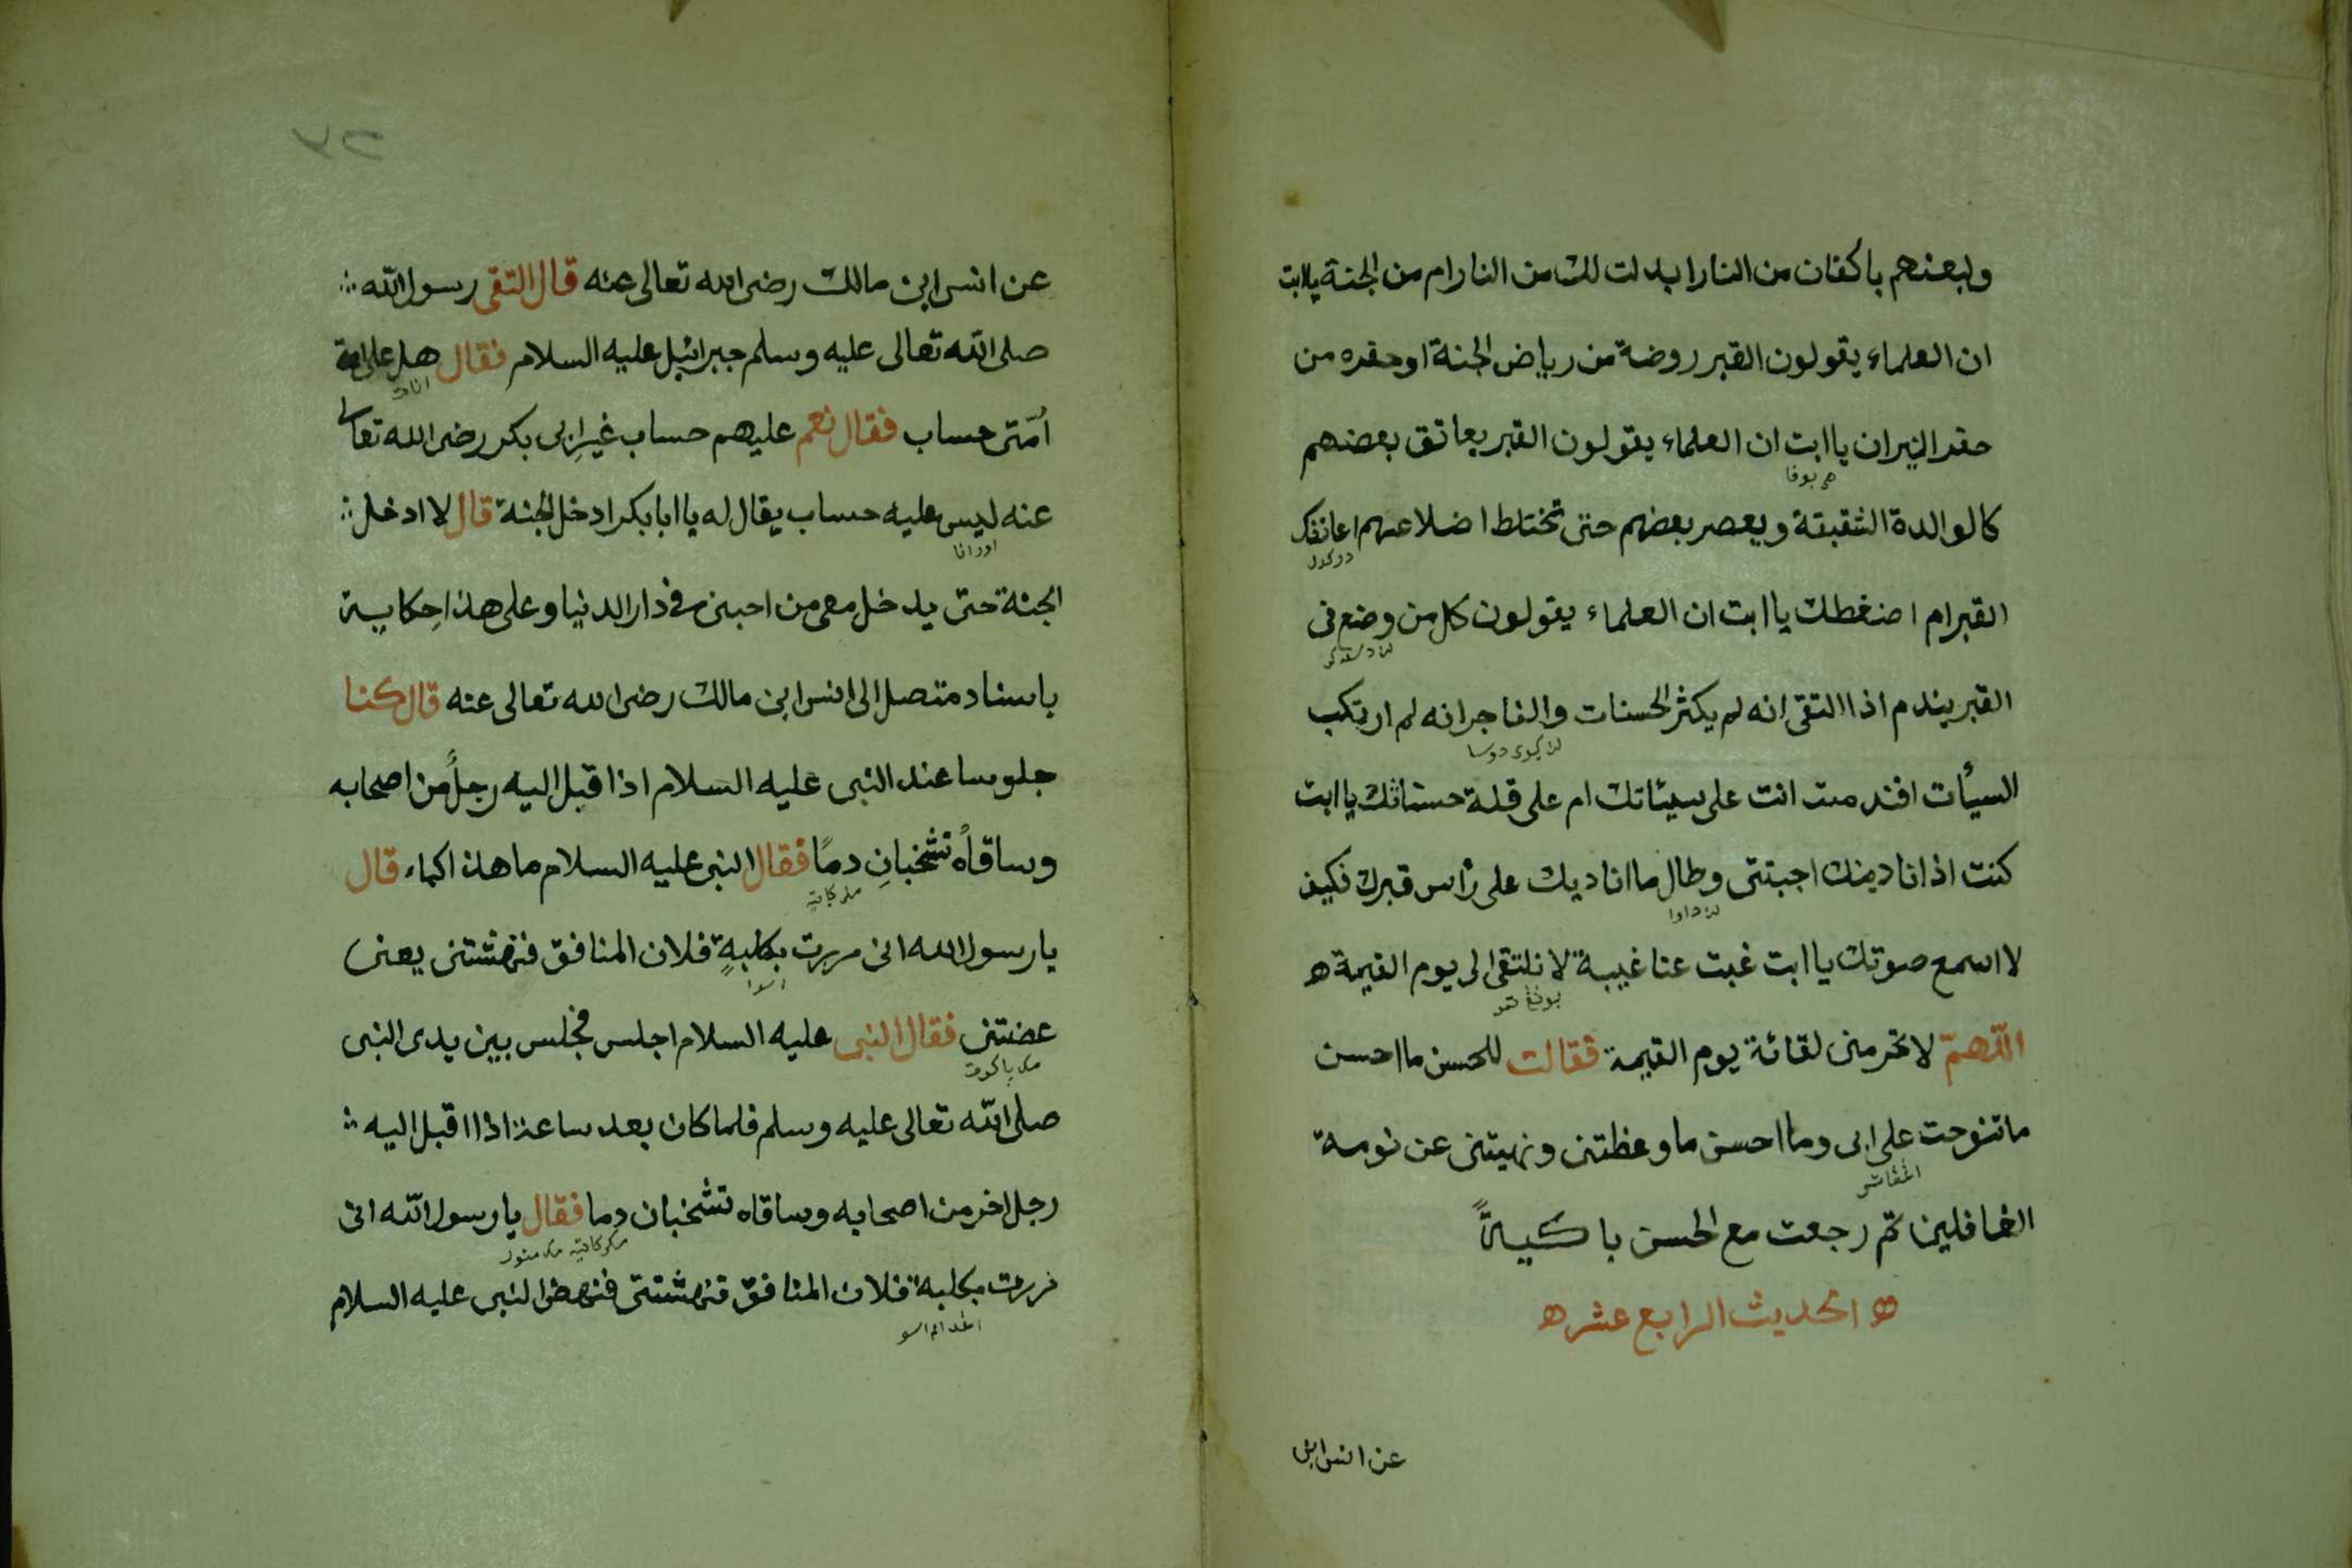 وبعضهم باكفان من النار ابدلت لك من النار ام من الجنة يا ابت
ان العلماء يقولون القبر روضة من رياض الجنة او حفره من
حفر النيران يا ابت ان العلماء يقولون القبر يعانق بعضهم
كالوالدة الشقيقة ويعصر بعضهم حتى تختلط اضلاعهم اعانقك
القبر ام اضغطك يا ابت ان العلماء يقولون كل من وضع فى
القبر يندم اذا التقى انه لم يكثر الحسنات والفاجر انه لم ارتكب
السيأت افندمت انت على سيئاتك ام على قلة حسناتك يا ابت
كنت اذا ناديتك اجبتنى وطال ما اناديك على رأس قبرك فكيف
لا اسمع صوتك يا ابت غبت عنا غيبة لا نلتقى الى يوم القيمة ه
اللّهمّ لا تحرمنى لقائه يوم القيمة فقالت للحسن ما احسن
ما تنوحت على ابى وما احسن ما وعظتنى ونهيتنى عن نومة
الغافلين ثم رجعت مع الحسن باكيةً
ه الحديث الرابع عشر ه
عن انس ابن
عن انس ابن مالك رضى الله تعالى عنه قال التقى رسول الله ∴
صلى الله تعالى عليه وسلم جبرائيل عليه السلام فقال هل على امة
أمّتى حساب فقال نعم عليهم حساب غير ابى بكر رضى الله تعالى
عنه ليس عليه حساب يقال له يا ابا بكر ادخل الجنة قال لا ادخل ∴
الجنة حتى يدخل معى من احبنى فى دار الدنيا وعلى هذا حكاية
باسناد متصل الى انس ابن مالك رضى الله تعالى عنه قال كنا
جلوسا عند النبى عليه السلام اذا قبل اليه رجلٌ من اصحابه
وساقاه تشخبانِ دمًا فقال النبى عليه السلام ما هذا كماء قال
يا رسول الله انى مررت بكلبةٍ فلان المنافق فنهشتنى يعنى
عضتنى فقال النبى عليه السلام اجلس فجلس بين يدى النبى
صلى الله تعالى عليه وسلم فلما كان بعد ساعة اذا اقبل اليه ∴
رجل اخر من اصحابه وساقاه تشخبان دما فقال يا رسول الله انى
مررت بكلبة فلان المنافق فنهشتنى فنهض النبى عليه السلام